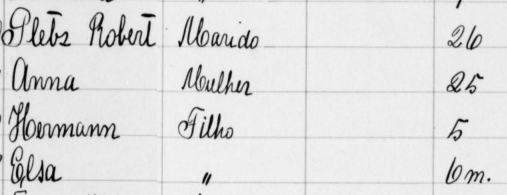 Plets Robert Marido 26
Anna Mulher 25
Hermann Filho 5
Elsa " 6 m.